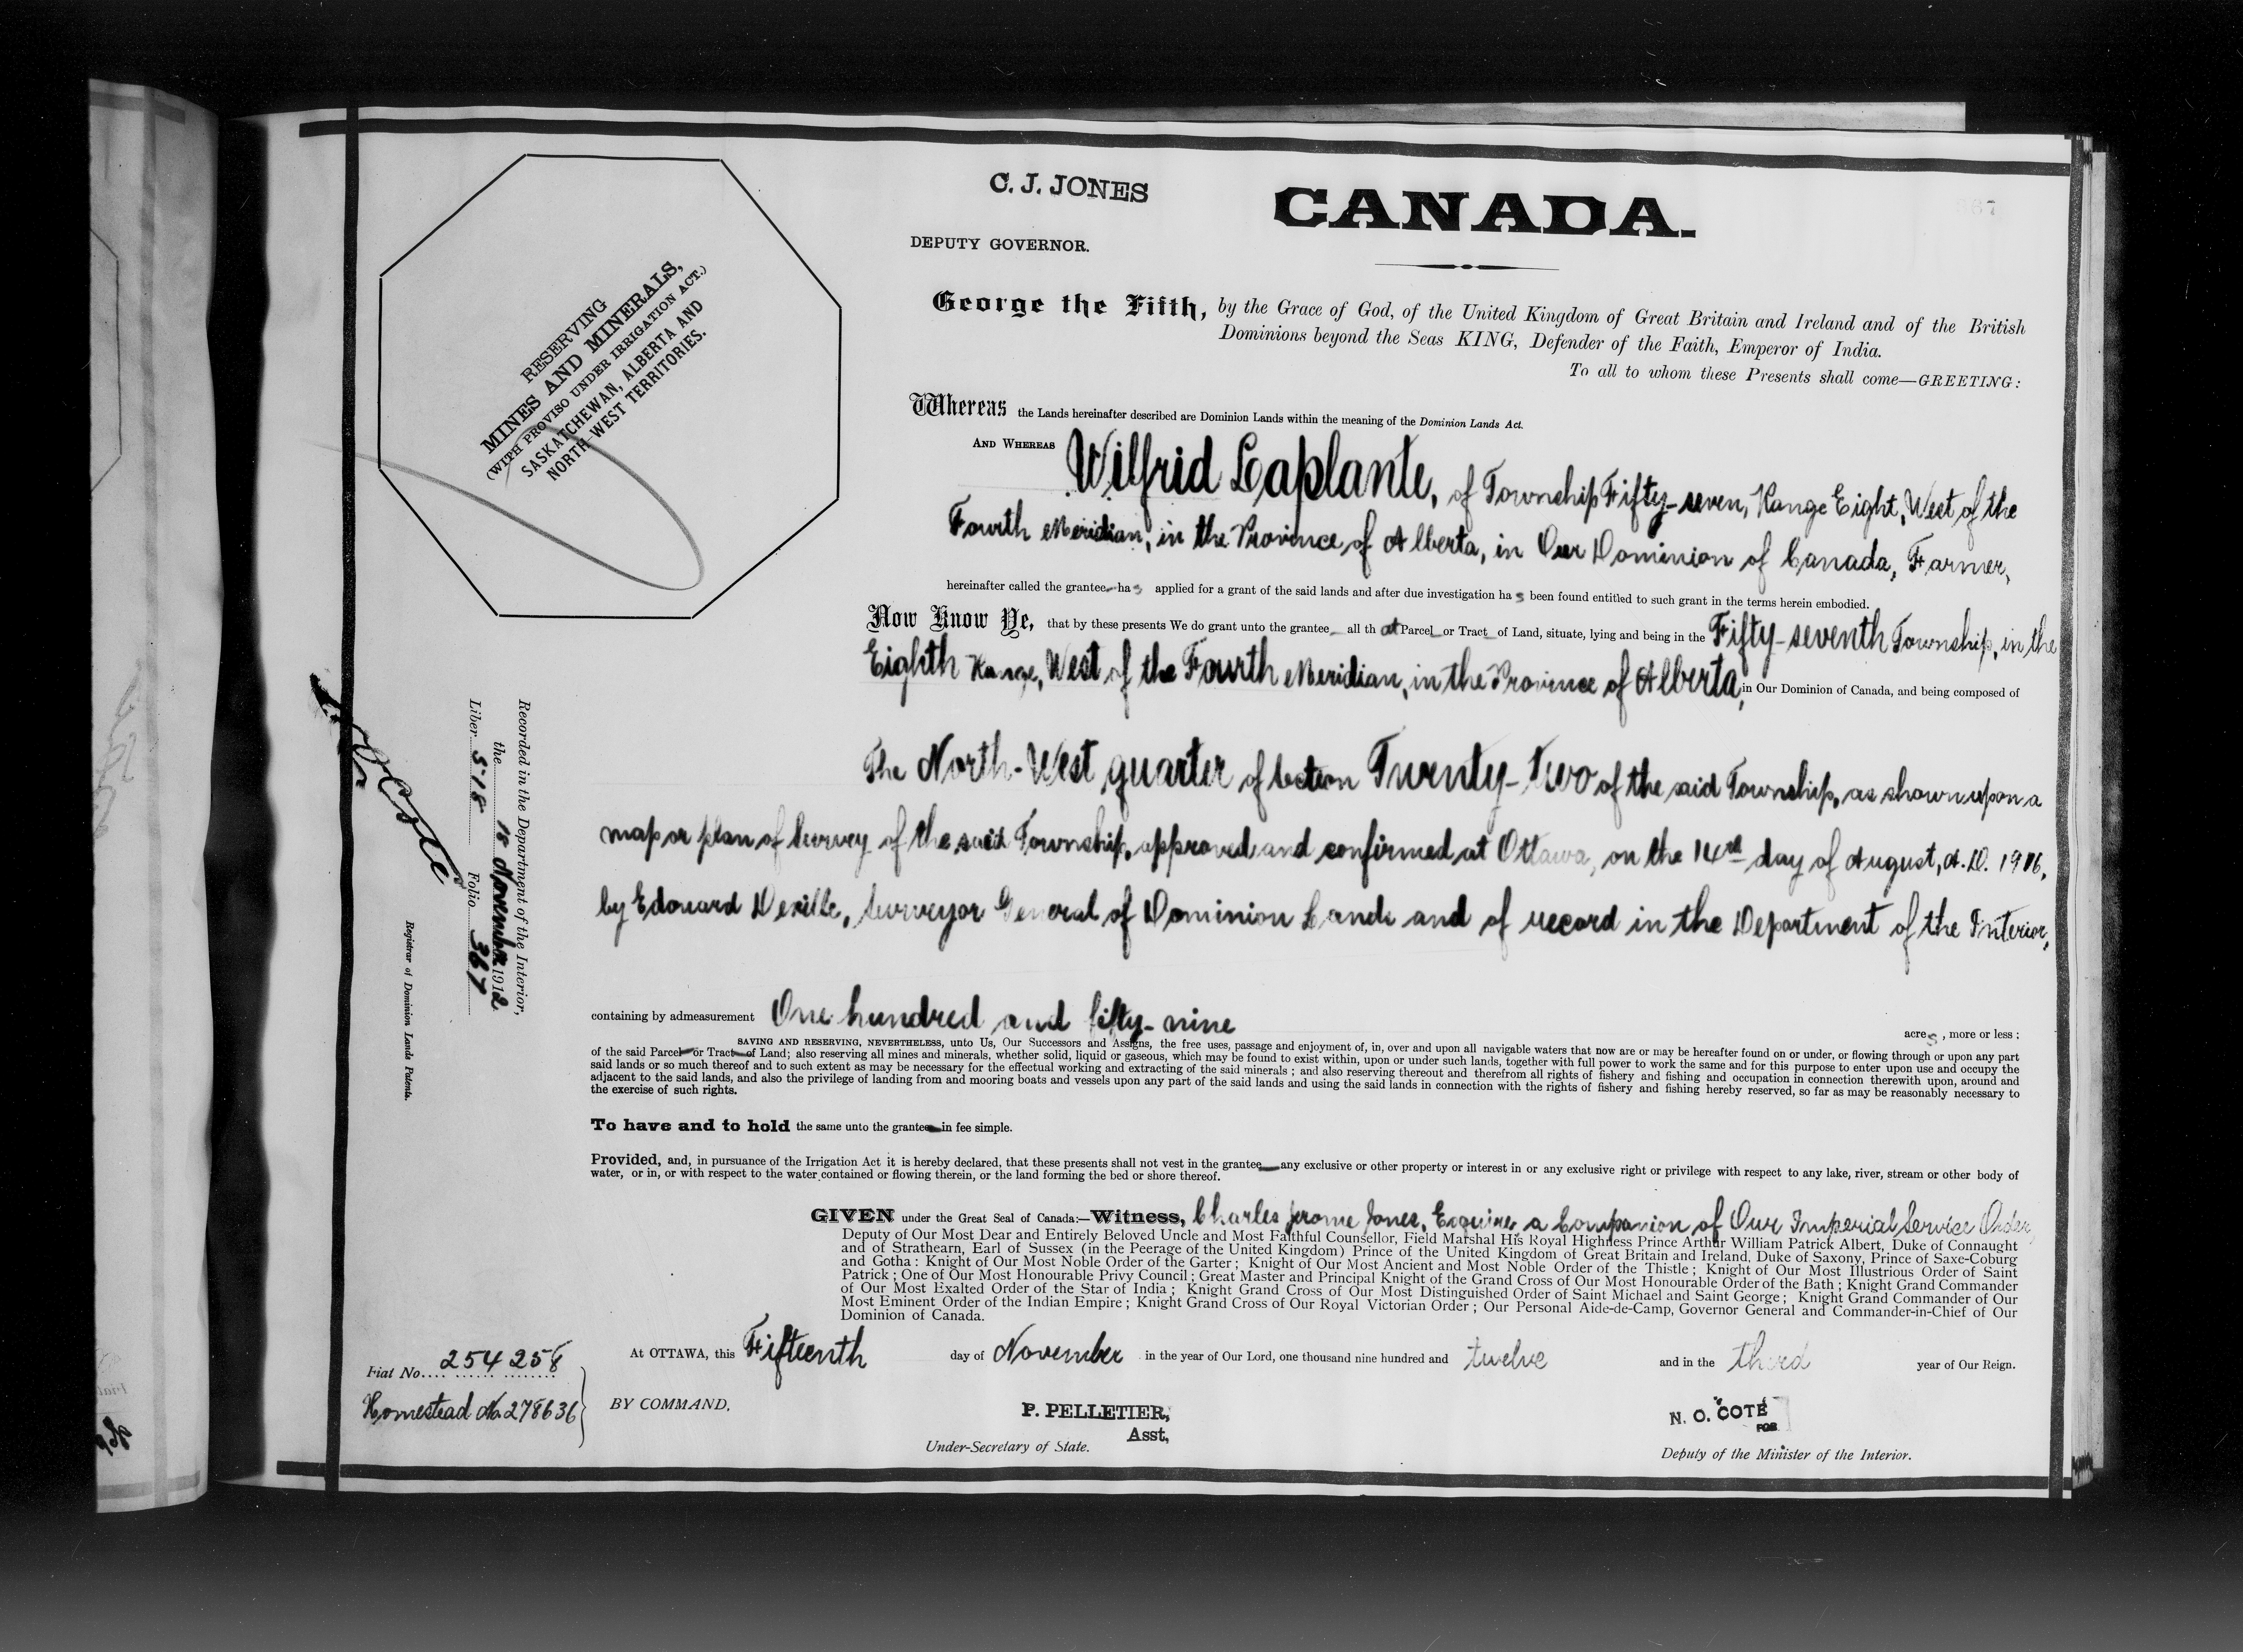 C. J. JONES
CANADA.
DEPUTY GOVERNOR.
RESERVING
MINES AND MINERALS,
(WITH PROVISO UNDER IRRIGATION ACT.)
SASKATCHEWAN, ALBERTA AND
NORTH-WEST TERRITORIES.
George the Fifth, by the Grace of God, of the United Kingdom of Great Britain and Ireland and of the British
Dominions beyond the Seas KING, Defender of the Faith, Emperor of India.
To all to whom these Presents shall come—GREETING:
Whereas the Lands hereinafter described are Dominion Lands within the meaning of the Dominion Lands Act.
AND WHEREAS Wilfrid Laplante, of Township Fifty-seven, Range Eight, West of the
Fourth Meridian, in the Province of Alberta, in Our Dominion of Canada, Farmer,
hereinafter called the grantee has applied for a grant of the said lands and after due investigation has been found entitled to such grant in the terms herein embodied.
Now Know Ye, that by these presents We do grant unto the grantee all that Parcel or Tract of Land, situate, lying and being in the Fifty-seventh Township, in the
Eighth Range, West of the Fourth Meridian, in the Province of Alberta, in Our Dominion of Canada, and being composed of
The North-West quarter of Section Twenty-two of the said Township, as shown upon a
map or plan of Survey of the said Township, approved and confirmed at Ottawa, on the 14th day of August, A.D. 1906,
by Edouard Deville, Surveyor General of Dominion Lands and of record in the Department of the Interior,
containing by admeasurement One hundred and fifty-nine acres, more or less:
SAVING AND RESERVING, NEVERTHELESS, unto Us, Our Successors and Assigns, the free uses, passage and enjoyment of, in, over and upon all navigable waters that now are or may be hereafter found on or under, or flowing through or upon any part
of the said Parcel or Tract of Land; also reserving all mines and minerals, whether solid, liquid or gaseous, which may be found to exist within, upon or under such lands, together with full power to work the same and for this purpose to enter upon use and occupy the
said lands or so much thereof and to such extent as may be necessary for the effectual working and extracting of the said minerals; and also reserving thereout and therefrom all rights of fishery and fishing and occupation in connection therewith upon, around and
adjacent to the said lands, and also the privilege of landing from and mooring boats and vessels upon any part of the said lands and using the said lands in connection with the rights of fishery and fishing hereby reserved, so far as may be reasonably necessary to
the exercise of such rights.
To have and to hold the same unto the grantee in fee simple.
Provided, and, in pursuance of the Irrigation Act it is hereby declared, that these presents shall not vest in the grantee any exclusive or other property or interest in or any exclusive right or privilege with respect to any lake, river, stream or other body of
water, or in, or with respect to the water contained or flowing therein, or the land forming the bed or shore thereof.
GIVEN under the Great Seal of Canada:—Witness, Charles Jerome Jones, Esquire a Companion of Our Imperial Service Order
Deputy of Our Most Dear and Entirely Beloved Uncle and Most Faithful Counsellor, Field Marshal His Royal Highness Prince Arthur William Patrick Albert, Duke of Connaught
and of Strathearn, Earl of Sussex (in the Peerage of the United Kingdom) Prince of the United Kingdom of Great Britain and Ireland, Duke of Saxony, Prince of Saxe-Coburg
and Gotha: Knight of Our Most Noble Order of the Garter; Knight of Our Most Ancient and Most Noble Order of the Thistle; Knight of Our Most Illustrious Order of Saint
Patrick; One of Our Most Honourable Privy Council; Great Master and Principal Knight of the Grand Cross of Our Most Honourable Order of the Bath; Knight Grand Commander
of Our Most Exalted Order of the Star of India; Knight Grand Cross of Our Most Distinguished Order of Saint Michael and Saint George; Knight Grand Commander of Our
Most Eminent Order of the Indian Empire; Knight Grand Cross of Our Royal Victorian Order; Our Personal Aide-de-Camp, Governor General and Commander-in-Chief of Our
Dominion of Canada.
At OTTAWA, this Fifteenth day of November in the year of Our Lord, one thousand nine hundred and twelve and in the third year of Our Reign.
BY COMMAND,
P. PELLETIER,
Asst,
Under-Secretary of State.
N. O. COTÉ
FOR
Deputy of the Minister of the Interior.
Fiat No. 254258
Homestead No. 278636
Recorded in the Department of the Interior,
the 18 November 1912
Liber 518 Folio 367
N O Coté
Registrar of Dominion Lands Patents.